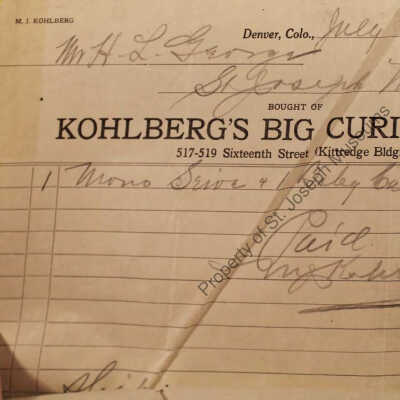 M. J. KOHLBERG
Denver, Colo., July
Mr H. L. George
St Joseph
BOUGHT OF
KOHLBERG'S BIG CURI
517-519 Sixteenth Street (Kittredge Bldg
1 Mono & 1 Baby
Paid
Property of St. Joseph Museums